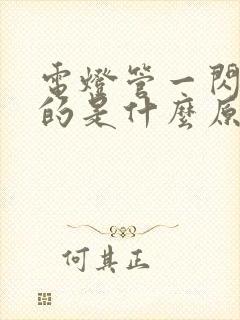 電燈管一閃
的是什麼原
何其正